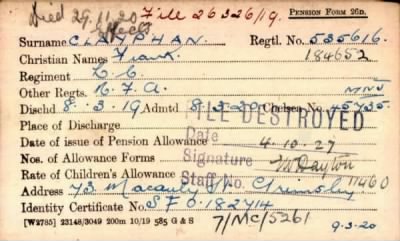 Died 29.11.20 File 26326/19. PENSION FORM 26D.
effects
Surname CLAYPHAN. Regtl. No. 535616.
Christian Names Frank 184652
Regiment L. C.
Other Regts. R. F. A.
Dischd 8.3.19 Admtd 8.3.20 Chelsea No. 45735
Place of Discharge FILE DESTROYED
Date of issue of Pension Allowance Date 4.10.27
Nos. of Allowance Forms Signature
Rate of Children's Allowance Staff No. 11460
Address 73 Macauly St. Grimsby
Identity Certificate No. S F 0.182714
[W2785] 23148/3049 200m 10/19 585 G & S 7/MC/5261 9-3-20